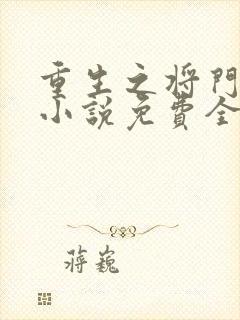 重生之将門
小說免費全
蔣巍